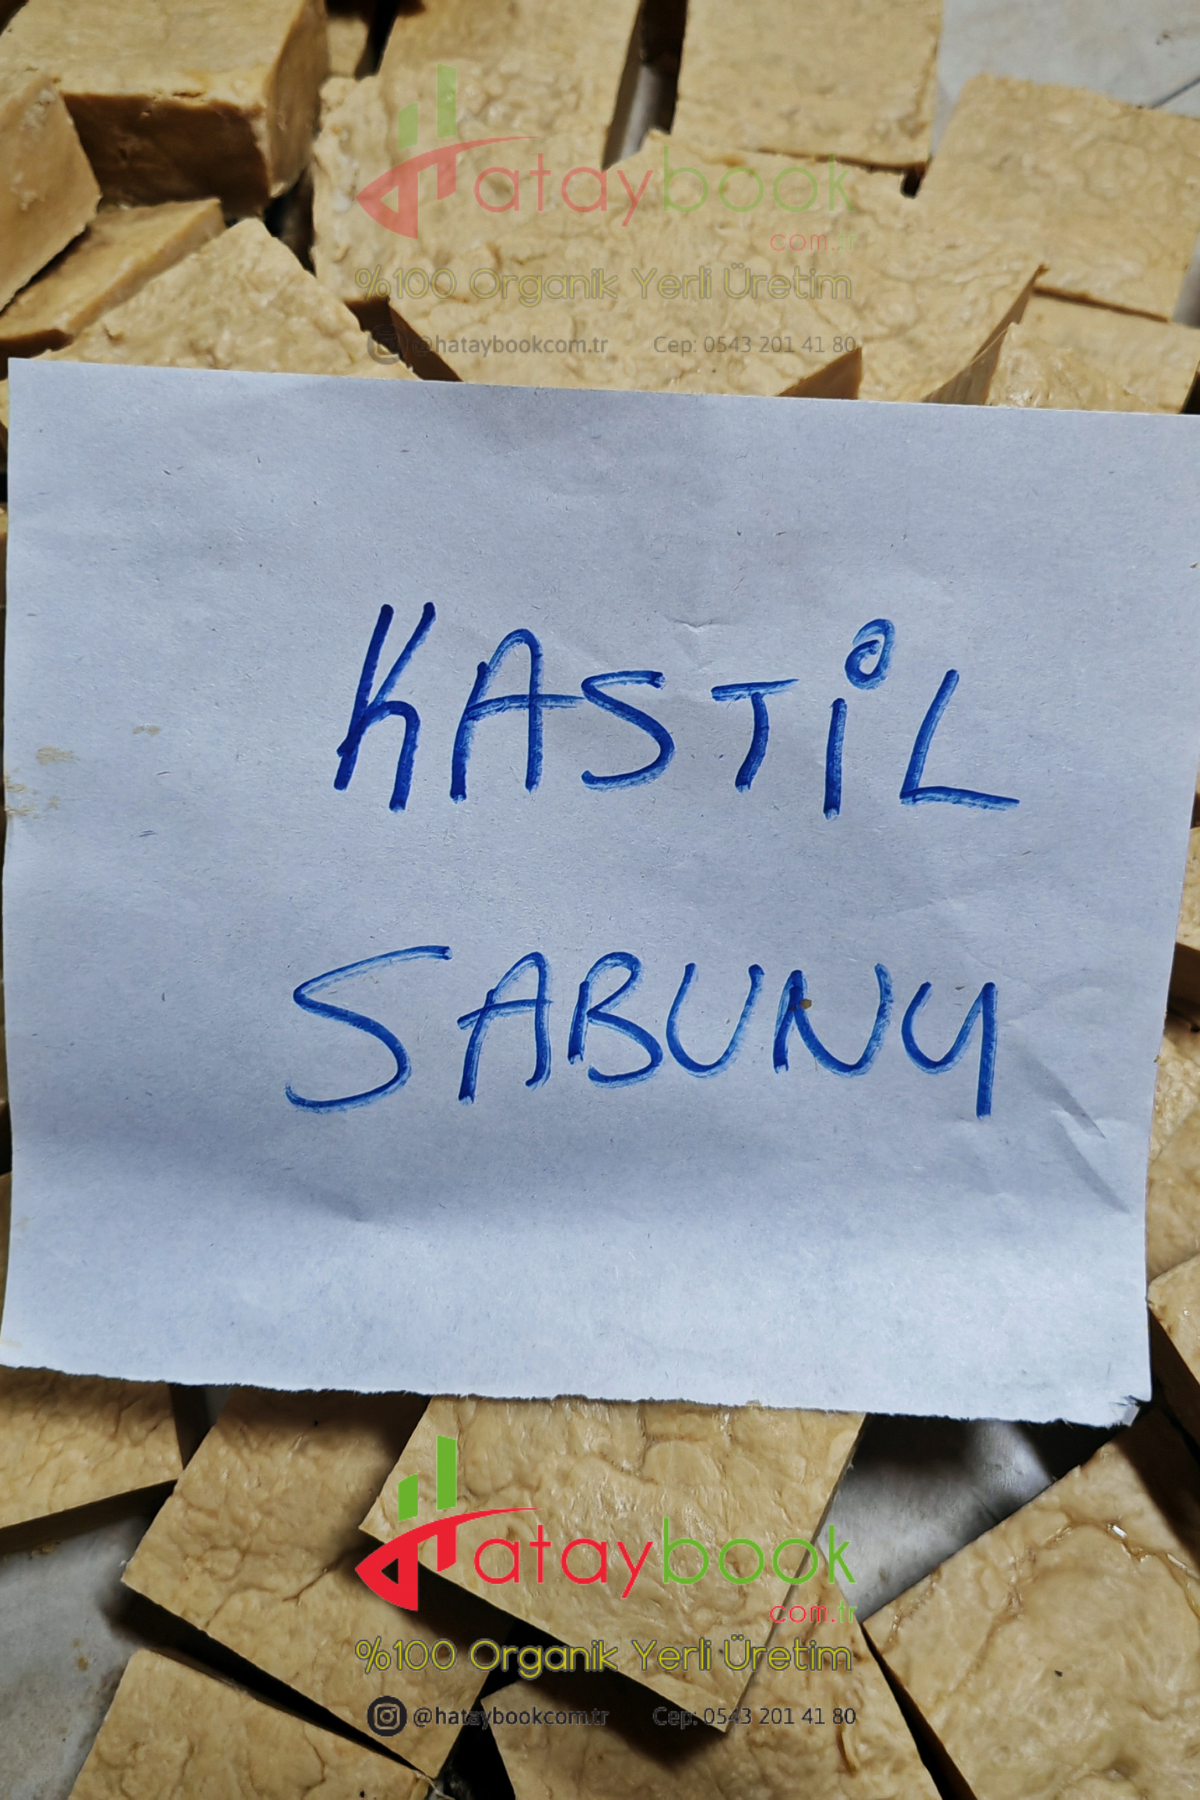 Hataybook
com.tr
%100 Organik Yerli Üretim
@hataybookcom.tr Cep: 0543 201 41 80
KASTİL
SABUNU
Hataybook
com.tr
%100 Organik Yerli Üretim
@hataybookcom.tr Cep: 0543 201 41 80